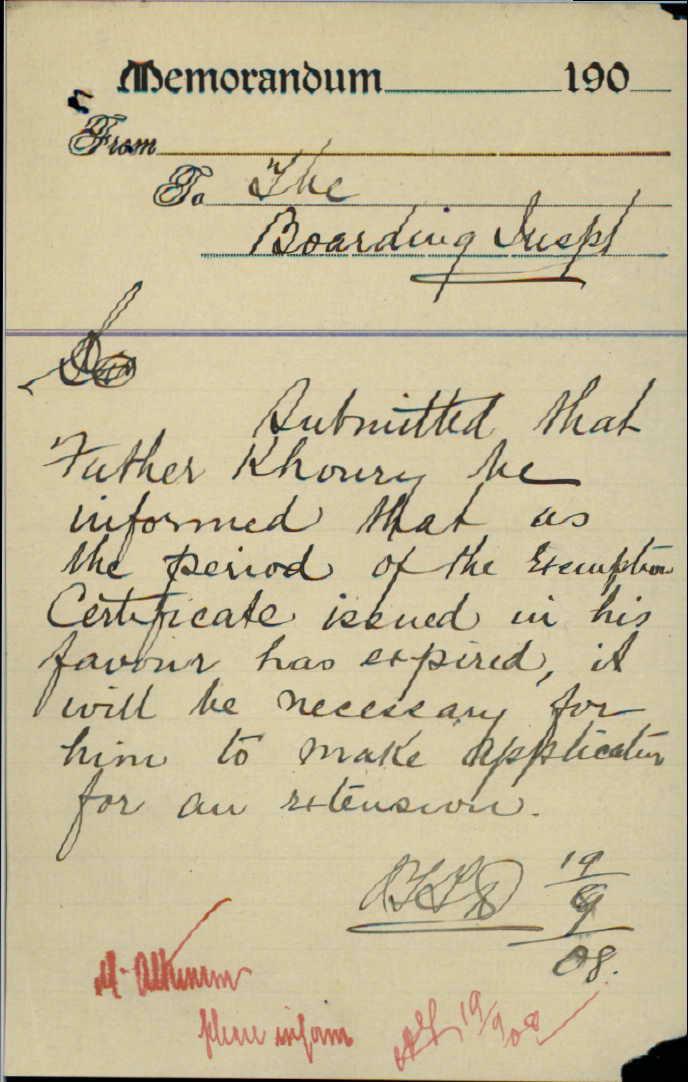 Memorandum 190
From
To The
Boarding Inspt
Submitted that
Father Khoury be
informed that as
the period of the Exemption
Certificate issued in his
favour has expired, it
will be necessary for
him to make application
for an extension.
19
9
08.
Mr Atkinson
please inform
19/9/08